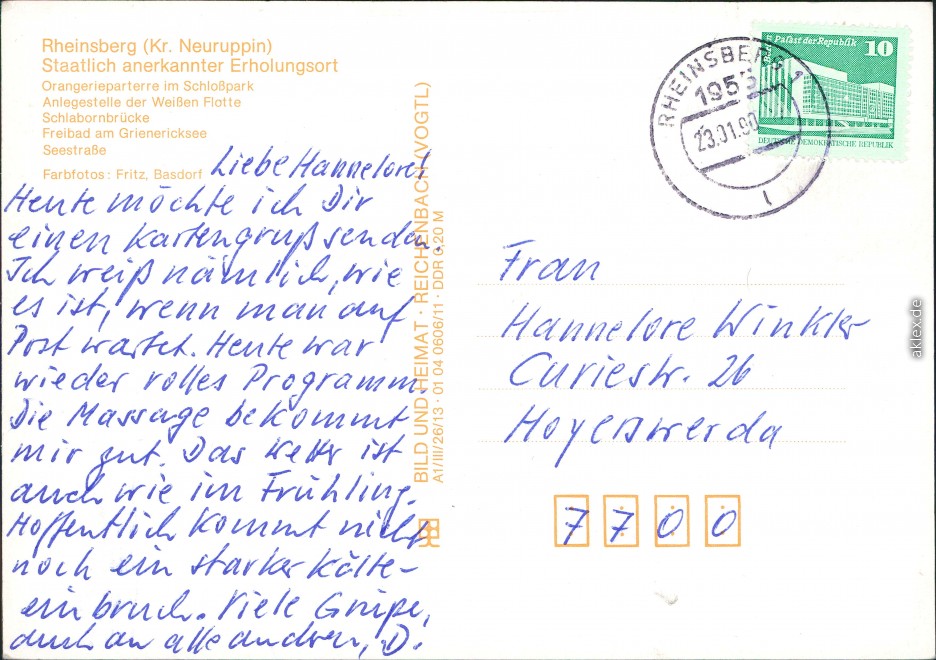 Rheinsberg (Kr. Neuruppin)
Staatlich anerkannter Erholungsort
Orangerieparterre im Schloßpark
Anlegestelle der Weißen Flotte
Schlabornbrücke
Freibad am Grienericksee
Seestraße
Farbfotos: Fritz, Basdorf
Liebe Hannelore!
Heute möchte ich Dir
einen Kartengruß senden.
Ich weiß nämlich, wie
es ist, wenn man auf
Post wartet. Heute war
wieder volles Programm.
Die Massage bekommt
mir gut. Das Wetter ist
auch wie im Frühling.
Hoffentlich kommt nicht
noch ein starker Kälte-
einbruch. Viele Grüße,
auch an alle anderen, D.
BILD UND HEIMAT · REICHENBACH (VOGTL)
A1/III/26/13 · 01 04 0606/11 · DDR 0,20 M
RHEINSBERG 1
1955
23.01.90
Palast der Republik 10
DEUTSCHE DEMOKRATISCHE REPUBLIK
Frau
Hannelore Winkler
Curiestr. 26
Hoyerswerda
7700
aklex.de